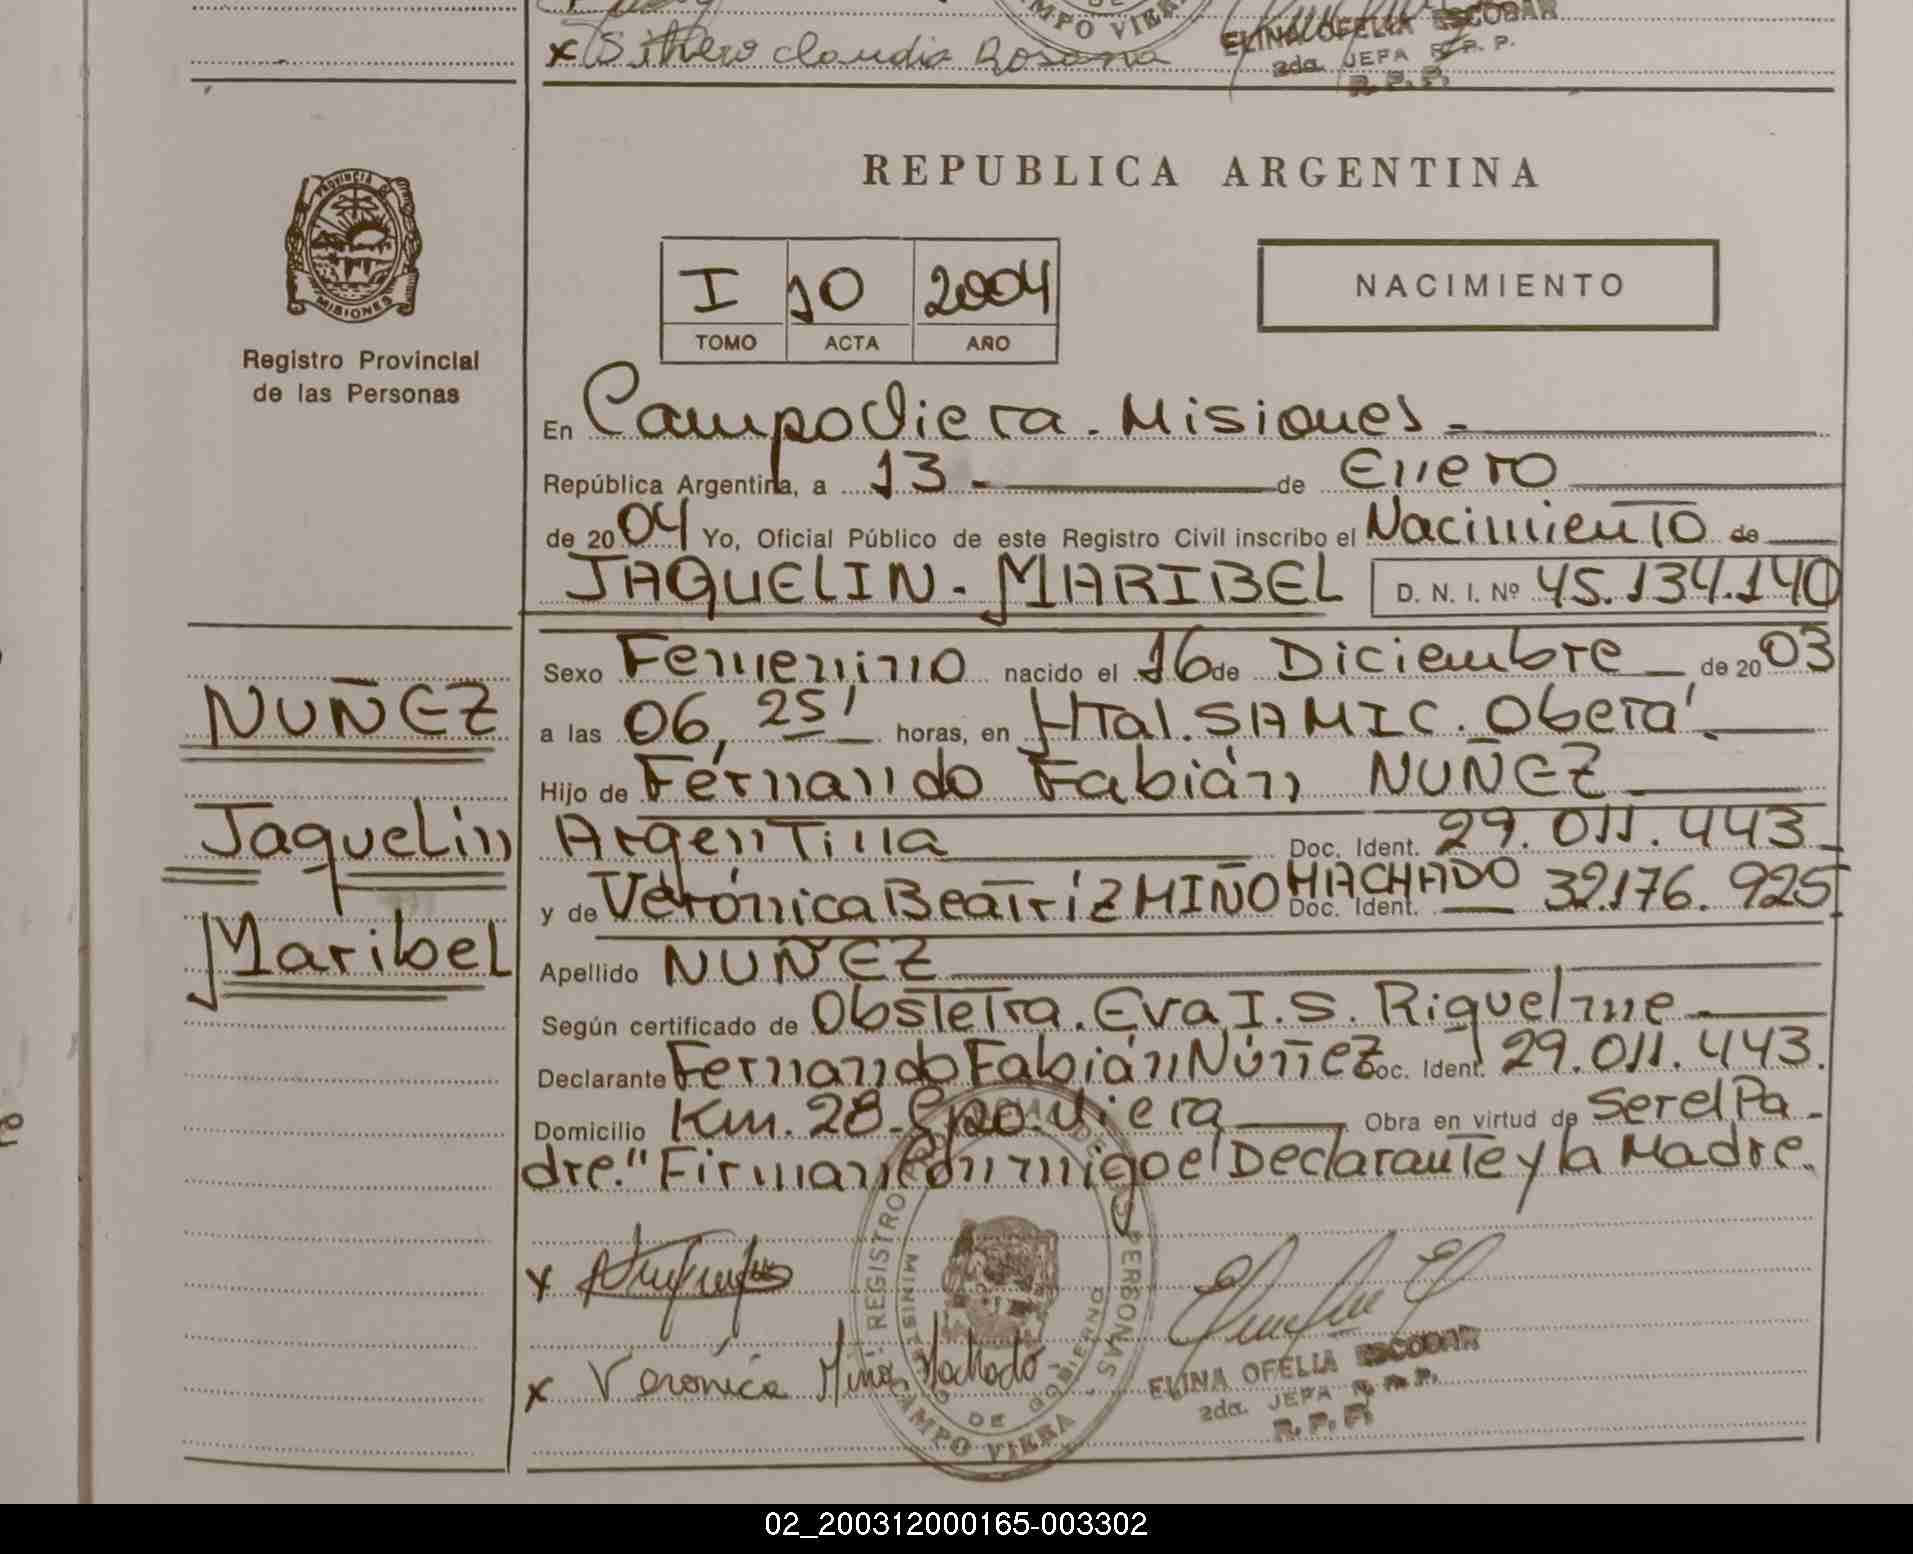 x Sithero Claudia Rosana
CAMPO VIERA
ELINA OFELIA ESCOBAR
2da. JEFA R. P. P.
R. P. P.
PROVINCIA DE
MISIONES
Registro Provincial
de las Personas
REPUBLICA ARGENTINA
I 10 2004
TOMO ACTA AÑO
NACIMIENTO
En Campo Viera - Misiones -
República Argentina, a 13 - de Enero
de 2004 Yo, Oficial Público de este Registro Civil inscribo el Nacimiento de
JAQUELIN - MARIBEL D. N. I. Nº 45.134.140
Sexo Femenino nacido el 16 de Diciembre de 2003
NUÑEZ
a las 06, 25' horas, en Htal. SAMIC. Oberá
Hijo de Fernando Fabián NUÑEZ
Jaquelin
Argentina Doc. Ident. 29.011.443
y de Verónica Beatríz MIÑO MACHADO Doc. Ident. 32.176.925
Maribel
Apellido NUÑEZ
Según certificado de Obstetra. Eva I. S. Riquelme
Declarante Fernando Fabián Núñez Doc. Ident. 29.011.443.
Domicilio Km. 28 - Cpo. Viera Obra en virtud de Ser el Pa-
dre." Firman Conmigo el Declarante y la Madre.
x
x Verónica Miño Machado
REGISTRO DE LAS PERSONAS
MINISTERIO DE GOBIERNO
CAMPO VIERA
ELINA OFELIA ESCOBAR
2da. JEFA R. P. P.
R. P. P.
02_200312000165-003302